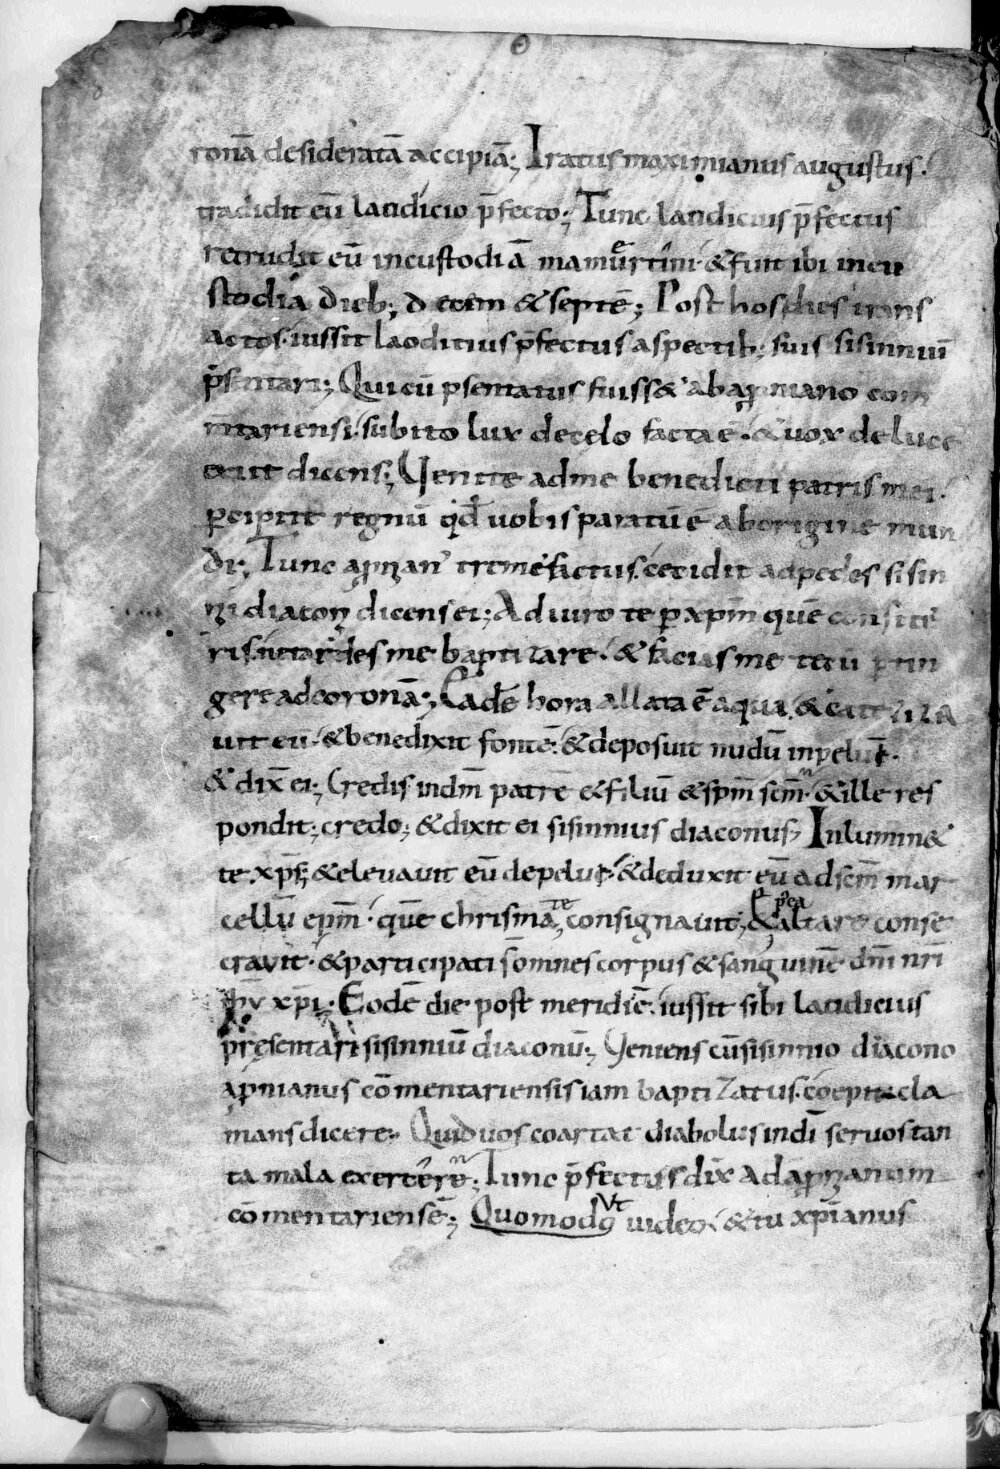 ronā desideratā accipiā; Iratus maximianus augustus.
tradidit eū laudicio p̄fecto; Tunc laudicius p̄fectus
retrudit eū incustodiā mamurtini · & fuit ibi incu
stodia dieb; decem & septē; Post hos dies trans
actos · iussit laoditius p̄fectus aspectib; suis sisinniū
p̄sentari; Qui cū psentatus fuiss& ab aproniano com
m̄tariensi · subito lux decelo facta ē · & uox deluce
exiit dicens; Uenite adme benedicti patris mei ·
ꝑcipite regnū qđ uobis paratū ē aborigine mun
di; Tunc apronian' tremefactus cecidit adpedes sisin
nii diaconi dicens ei; Adiuro te ꝑ xp̄m quē confite
ris me baptizare · & facias me tecū ꝑtin
gere adcoronā; Eadē hora allata ē aqua · & cateziza
uit eū · & benedixit fontē · & deposuit nudū inpeluē ·
& dix̄ ei; Credis indm̄ patrē & filiū & sp̄m sc̄m · & ille res
pondit; credo; & dixit ei sisinnius diaconus; Inlumin&
te xp̄s; & eleuauit eū depelue · & deduxit eū adsc̄m mar
cellū ep̄m · quē chrismate consignauit; & p̄ea altare conse
crauit · & participati s̄ omnes corpus & sanguinē dm̄ nr̄i
ihū xp̄i · Eodē die post meridiē · iussit sibi laudicius
pręsentari sisinniū diaconū; Ueniens cū sisinnio diacono
apronianus cōmentariensis iam baptizatus · coepit cla
mans dicere; Quid uos coartat diabolus indī seruos tan
ta mala exercere; Tunc p̄fectus dix̄ ad apronianum
cōmentariensē; Quomodo Vt uideo · & tu xp̄ianus